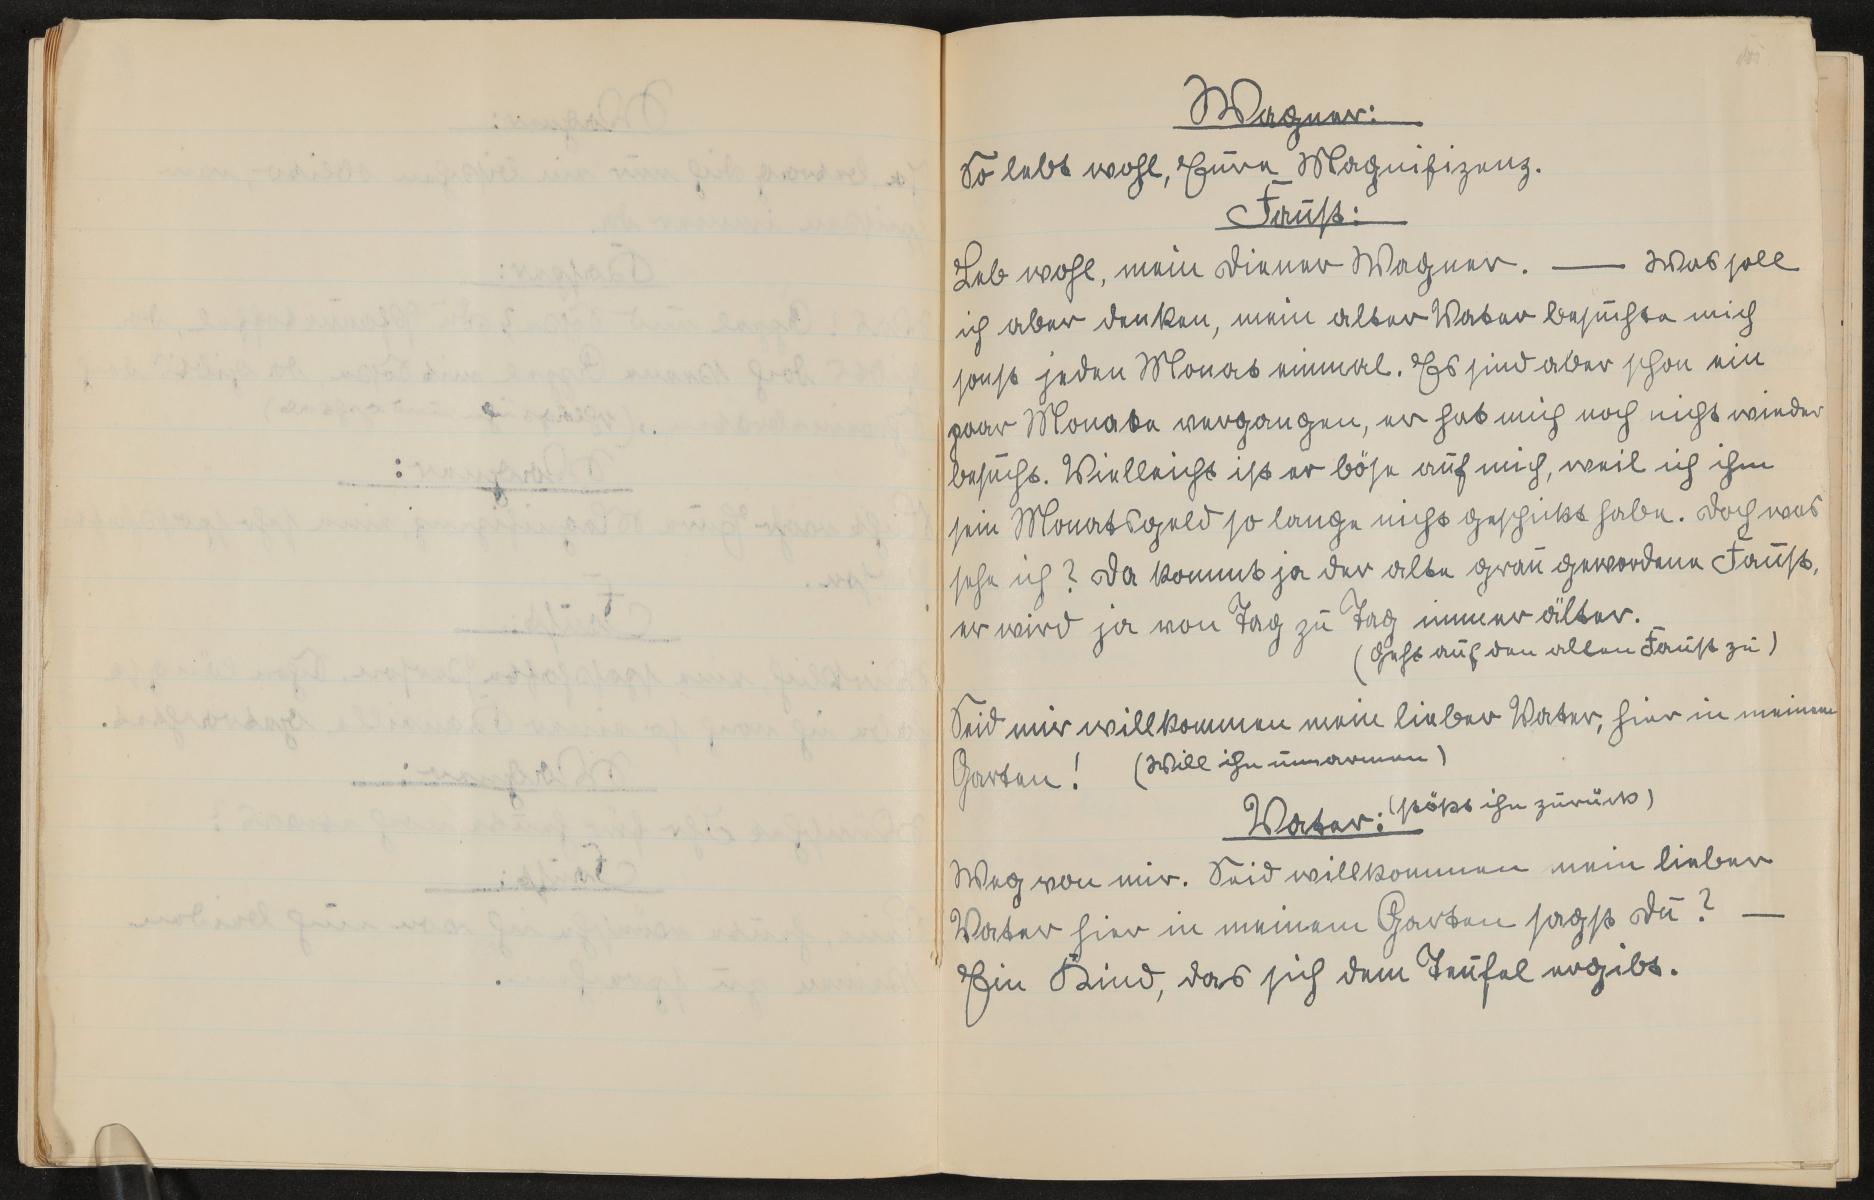 Wagner:
So lebt wohl, Eure Magnifizenz.
Faust:
Leb wohl, mein Diener Wagner. — Was soll
ich aber denken, mein alter Vater besuchte mich
sonst jeden Monat einmal. Es sind aber schon ein
paar Monate vergangen, er hat mich noch nicht wieder
besucht. Vielleicht ist er böse auf mich, weil ich ihm
sein Monatsgeld so lange nicht geschickt habe. Doch was
sehe ich? Da kommt ja der alte grau gewordene Faust,
er wird ja von Tag zu Tag immer älter.
(Geht auf den alten Faust zu)
Seid mir willkommen mein lieber Vater, hier in meinem
Garten! (Will ihn umarmen)
Vater: (stößt ihn zurück)
Weg von mir. Seid willkommen mein lieber
Vater hier in meinem Garten sagst Du? —
Ein Kind, das sich dem Teufel ergibt.